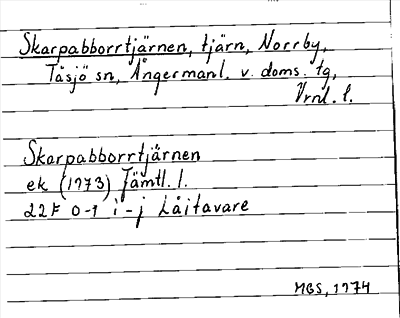 Skarpabborrtjärnen, tjärn, Norrby,
Tåsjö sn, Ångermanl. v. doms. tg,
Vrnl. l.
Skarpabborrtjärnen
ek (1973) Jämtl. l.
22F 0-1 i-j Låitavare
MGS, 1974